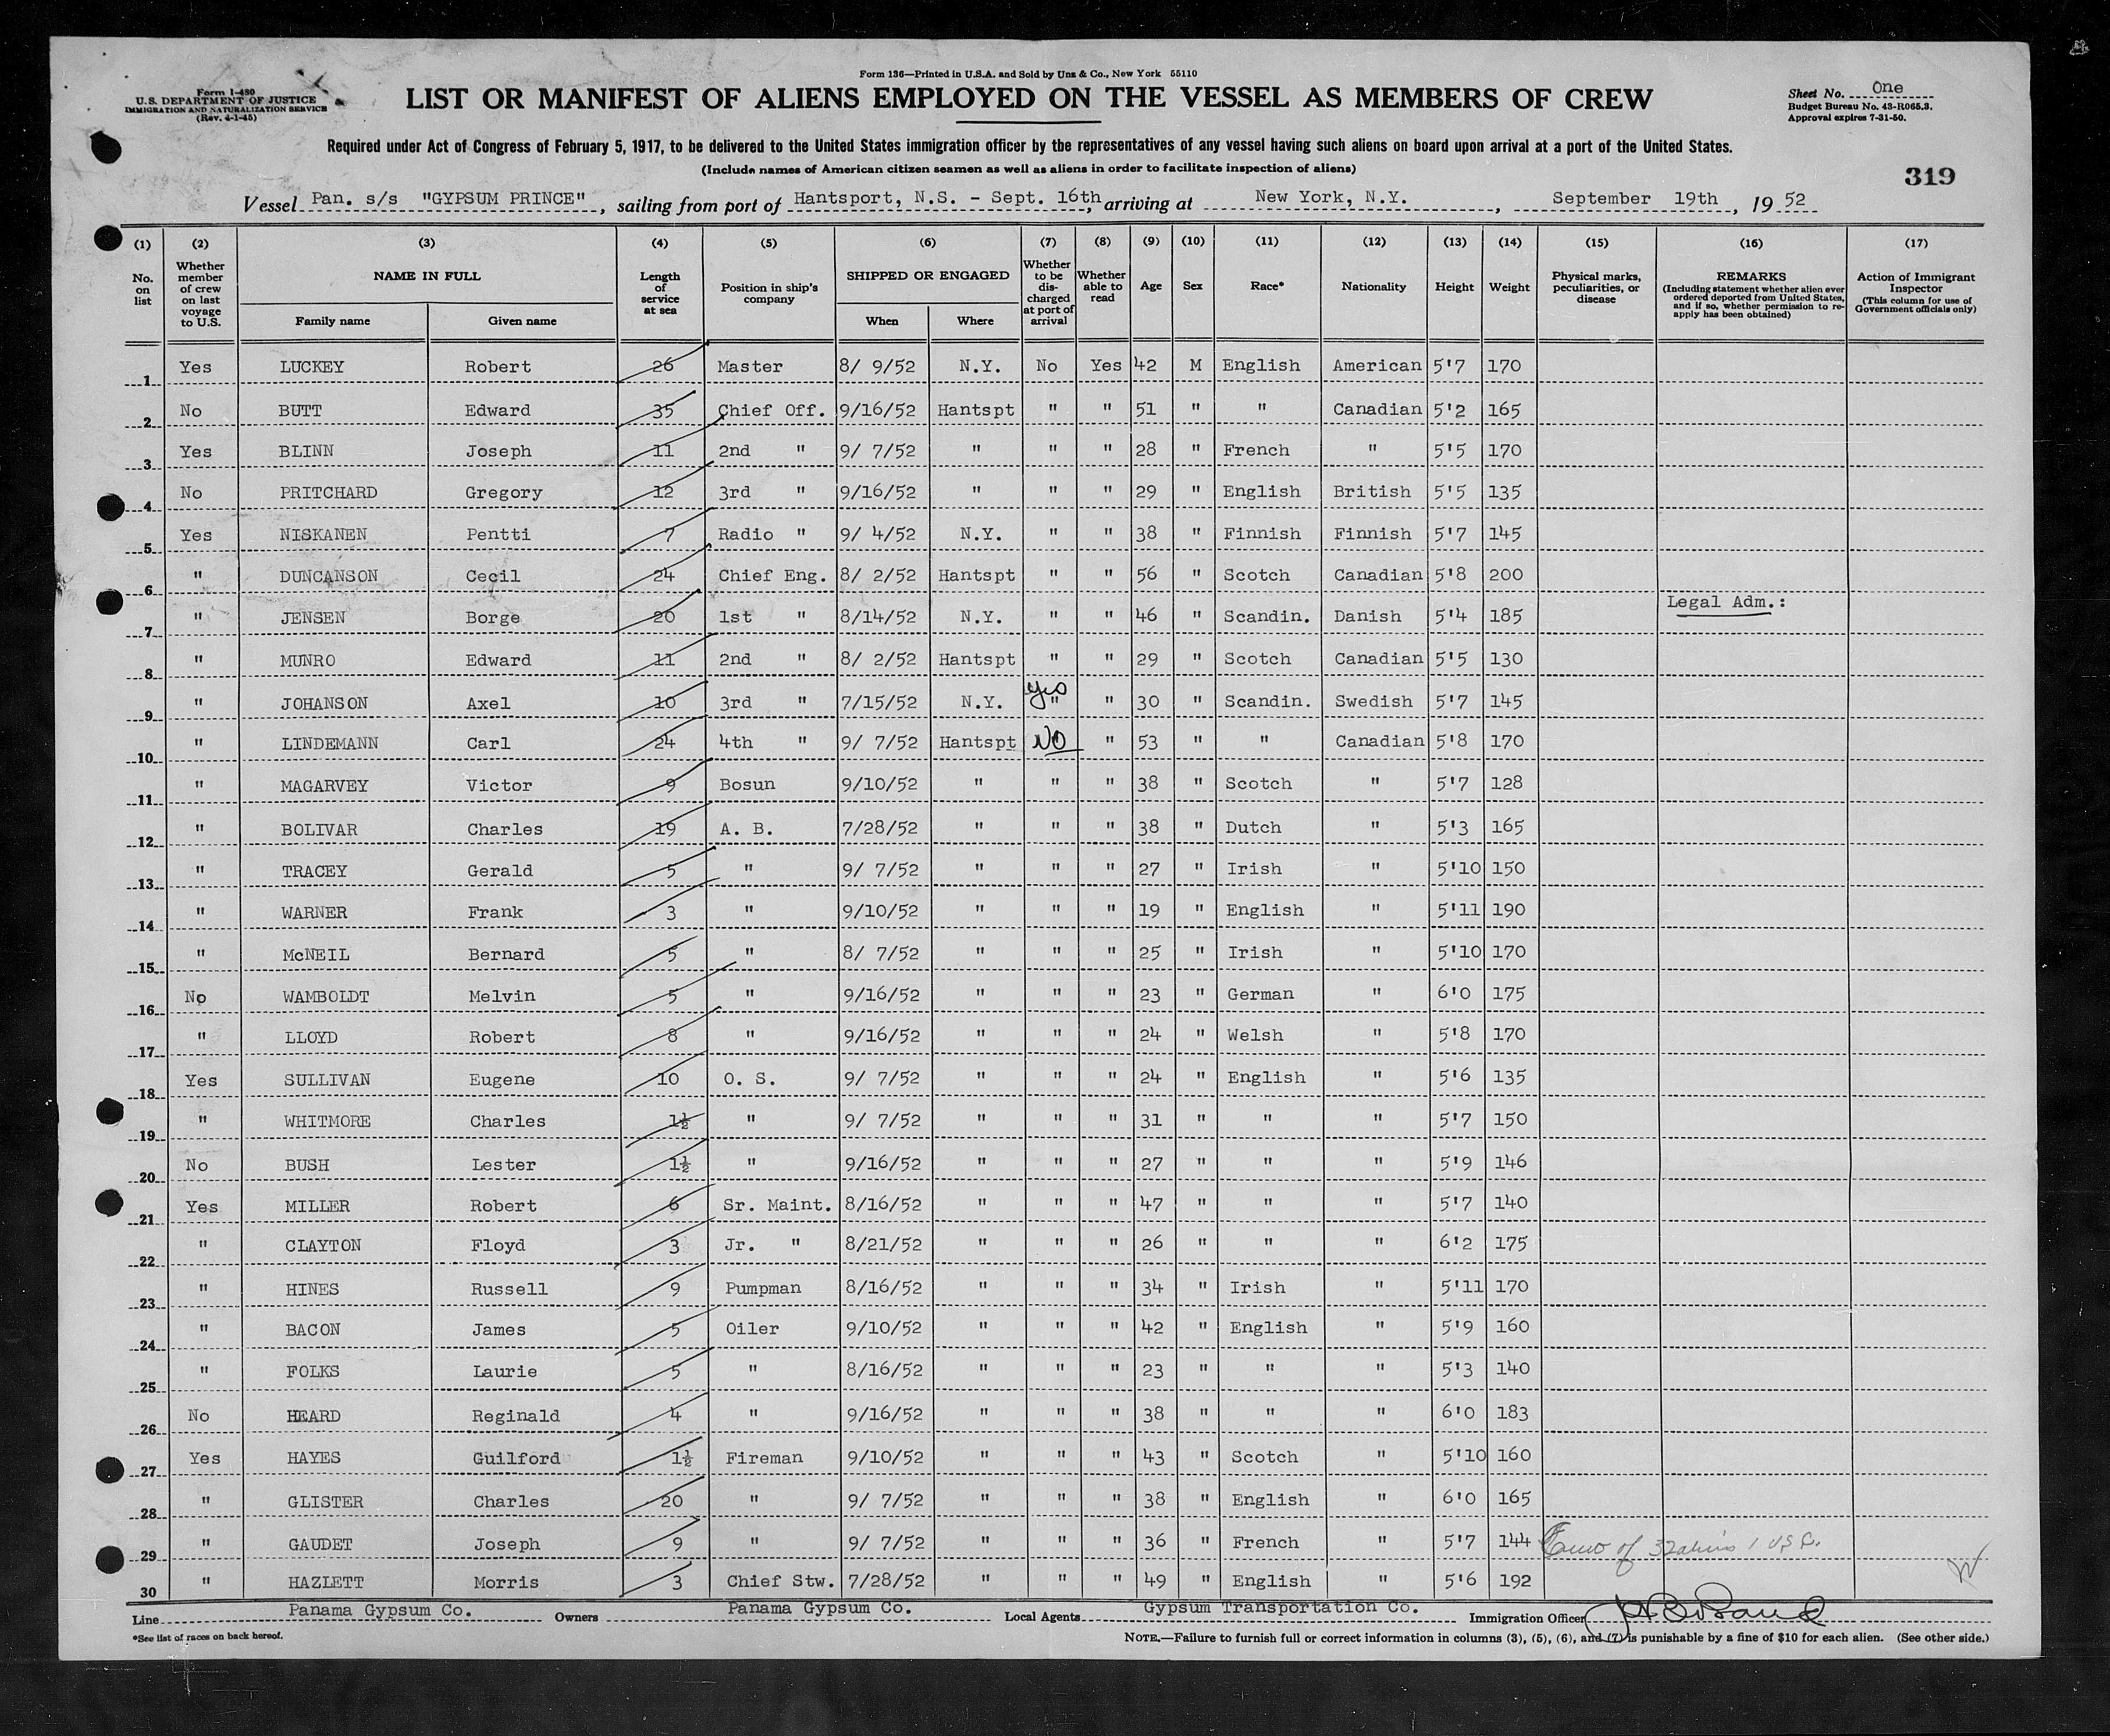 Form 136—Printed in U.S.A. and Sold by Unz & Co., New York 55110
Form I-480
U.S. DEPARTMENT OF JUSTICE
IMMIGRATION AND NATURALIZATION SERVICE
(Rev. 4-1-45)
LIST OR MANIFEST OF ALIENS EMPLOYED ON THE VESSEL AS MEMBERS OF CREW
Sheet No. One
Budget Bureau No. 43-R065.3.
Approval expires 7-31-50.
Required under Act of Congress of February 5, 1917, to be delivered to the United States immigration officer by the representatives of any vessel having such aliens on board upon arrival at a port of the United States.
(Include names of American citizen seamen as well as aliens in order to facilitate inspection of aliens)
319
Vessel Pan. s/s "GYPSUM PRINCE", sailing from port of Hantsport, N.S. - Sept. 16th, arriving at New York, N.Y., September 19th, 19 52
(1) (2) (3) (4) (5) (6) (7) (8) (9) (10) (11) (12) (13) (14) (15) (16) (17)
No. on list
Whether member of crew on last voyage to U.S.
NAME IN FULL
Family name Given name
Length of service at sea
Position in ship's company
SHIPPED OR ENGAGED
When Where
Whether to be discharged at port of arrival
Whether able to read
Age
Sex
Race*
Nationality
Height
Weight
Physical marks, peculiarities, or disease
REMARKS
(Including statement whether alien ever ordered deported from United States, and if so, whether permission to re-apply has been obtained)
Action of Immigrant Inspector
(This column for use of Government officials only)
1 Yes LUCKEY Robert 26 Master 8/ 9/52 N.Y. No Yes 42 M English American 5'7 170
2 No BUTT Edward 35 Chief Off. 9/16/52 Hantspt " " 51 " " Canadian 5'2 165
3 Yes BLINN Joseph 11 2nd " 9/ 7/52 " " " 28 " French " 5'5 170
4 No PRITCHARD Gregory 12 3rd " 9/16/52 " " " 29 " English British 5'5 135
5 Yes NISKANEN Pentti 7 Radio " 9/ 4/52 N.Y. " " 38 " Finnish Finnish 5'7 145
6 " DUNCANSON Cecil 24 Chief Eng. 8/ 2/52 Hantspt " " 56 " Scotch Canadian 5'8 200
Legal Adm.:
7 " JENSEN Borge 20 1st " 8/14/52 N.Y. " " 46 " Scandin. Danish 5'4 185
8 " MUNRO Edward 11 2nd " 8/ 2/52 Hantspt " " 29 " Scotch Canadian 5'5 130
9 " JOHANSON Axel 10 3rd " 7/15/52 N.Y. yes " " 30 " Scandin. Swedish 5'7 145
10 " LINDEMANN Carl 24 4th " 9/ 7/52 Hantspt NO " 53 " " Canadian 5'8 170
11 " MAGARVEY Victor 9 Bosun 9/10/52 " " " 38 " Scotch " 5'7 128
12 " BOLIVAR Charles 19 A. B. 7/28/52 " " " 38 " Dutch " 5'3 165
13 " TRACEY Gerald 5 " 9/ 7/52 " " " 27 " Irish " 5'10 150
14 " WARNER Frank 3 " 9/10/52 " " " 19 " English " 5'11 190
15 " McNEIL Bernard 5 " 8/ 7/52 " " " 25 " Irish " 5'10 170
16 No WAMBOLDT Melvin 5 " 9/16/52 " " " 23 " German " 6'0 175
17 " LLOYD Robert 8 " 9/16/52 " " " 24 " Welsh " 5'8 170
18 Yes SULLIVAN Eugene 10 O. S. 9/ 7/52 " " " 24 " English " 5'6 135
19 " WHITMORE Charles 1½ " 9/ 7/52 " " " 31 " " " 5'7 150
20 No BUSH Lester 1½ " 9/16/52 " " " 27 " " " 5'9 146
21 Yes MILLER Robert 6 Sr. Maint. 8/16/52 " " " 47 " " " 5'7 140
22 " CLAYTON Floyd 3 Jr. " 8/21/52 " " " 26 " " " 6'2 175
23 " HINES Russell 9 Pumpman 8/16/52 " " " 34 " Irish " 5'11 170
24 " BACON James 5 Oiler 9/10/52 " " " 42 " English " 5'9 160
25 " FOLKS Laurie 5 " 8/16/52 " " " 23 " " " 5'3 140
26 No HEARD Reginald 4 " 9/16/52 " " " 38 " " " 6'0 183
27 Yes HAYES Guilford 1½ Fireman 9/10/52 " " " 43 " Scotch " 5'10 160
28 " GLISTER Charles 20 " 9/ 7/52 " " " 38 " English " 6'0 165
29 " GAUDET Joseph 9 " 9/ 7/52 " " " 36 " French " 5'7 144 of 32 aliens 1 USC.
30 " HAZLETT Morris 3 Chief Stw. 7/28/52 " " " 49 " English " 5'6 192
Line Panama Gypsum Co. Owners Panama Gypsum Co. Local Agents Gypsum Transportation Co. Immigration Officer
*See list of races on back hereof.
NOTE.—Failure to furnish full or correct information in columns (3), (5), (6), and (7) is punishable by a fine of $10 for each alien. (See other side.)